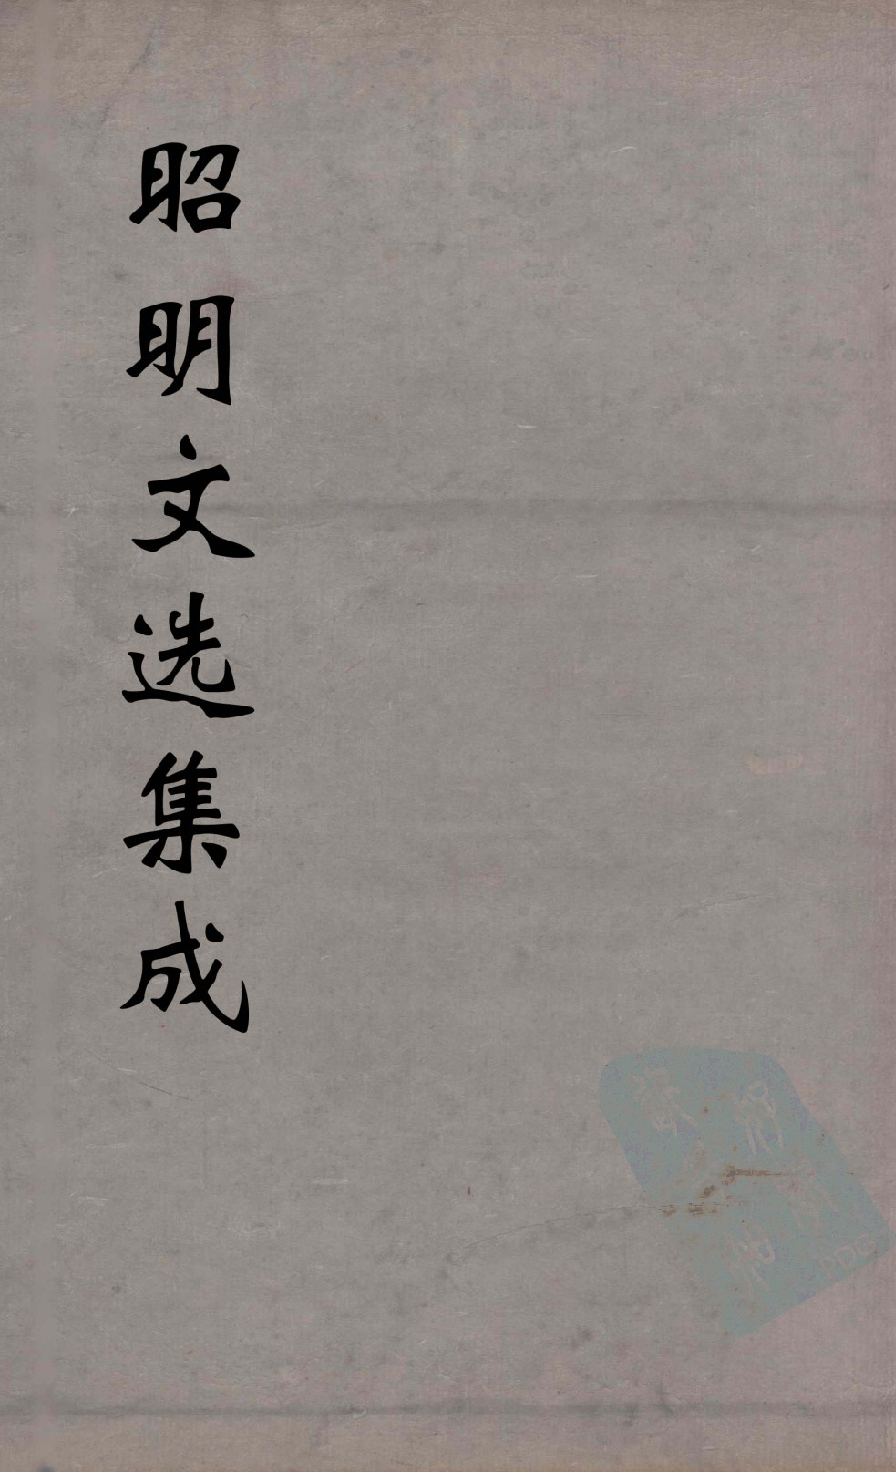 昭明文选集成
PDG